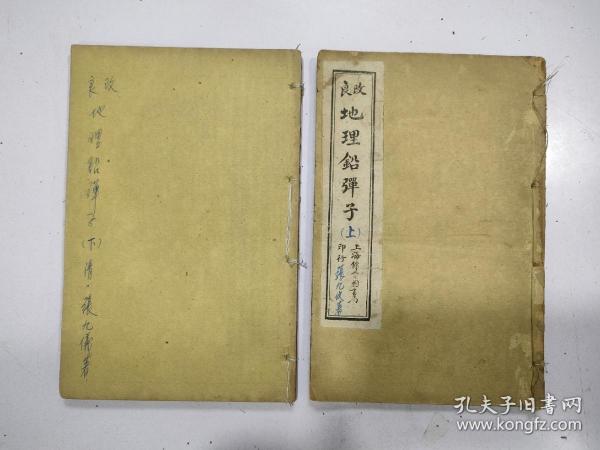 改良
地理鉛彈子(下)清·張九儀著
改良
地理鉛彈子
(上)
上海錦章圖書
印行 張九儀著
孔夫子旧书网
www.kongfz.com